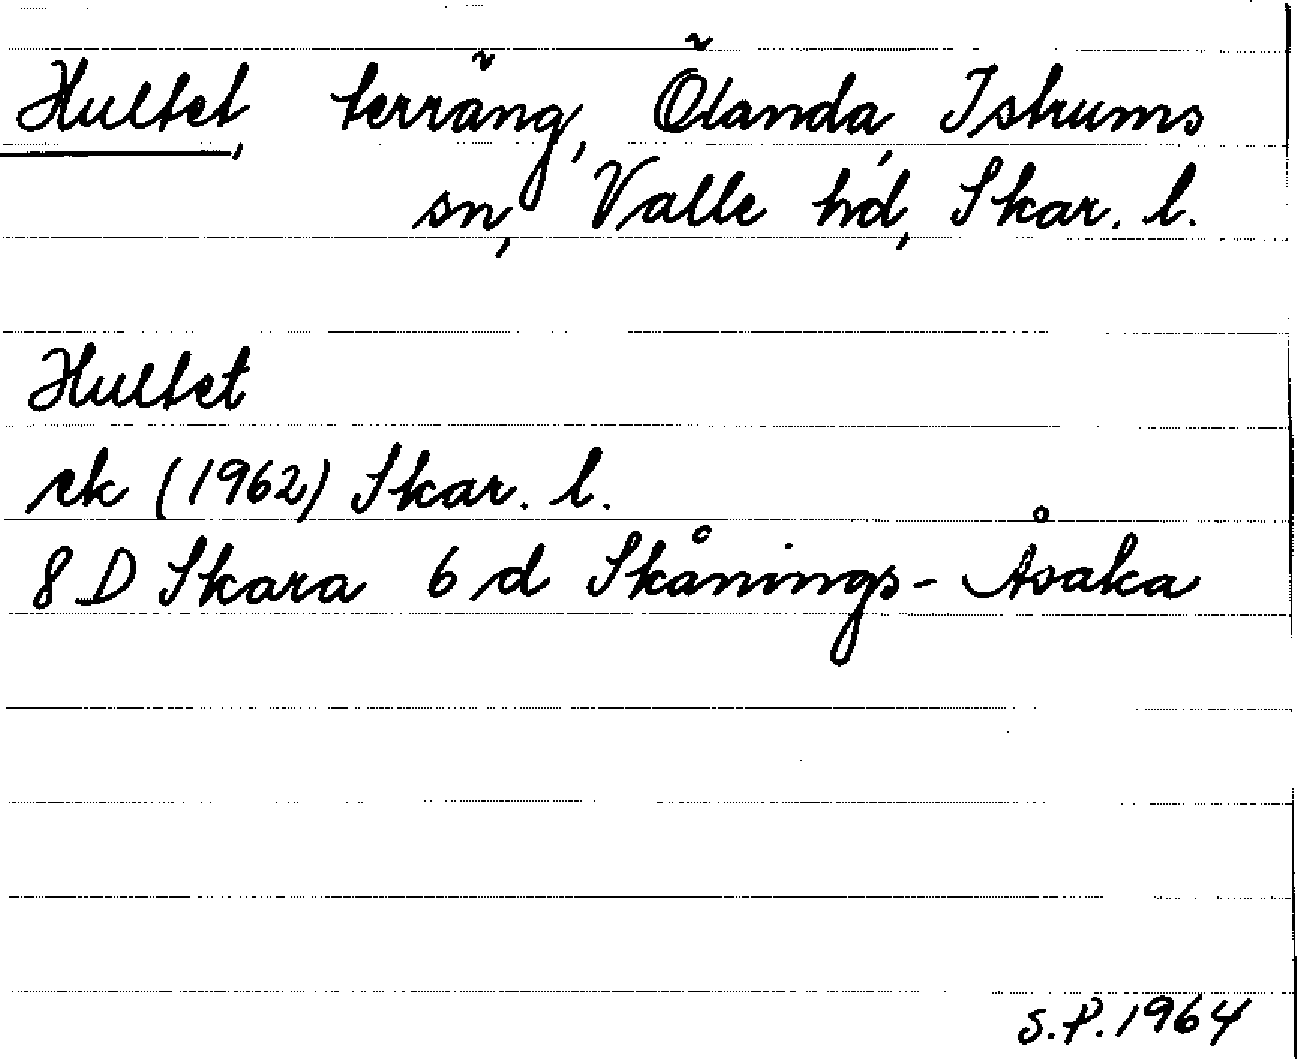 Hultet, terräng, Ölanda, Istrums
sn, Valle hd, Skar. l.
Hultet
ek (1962) Skar. l.
8 D Skara 6 d Skånings-Åsaka
S.P. 1964